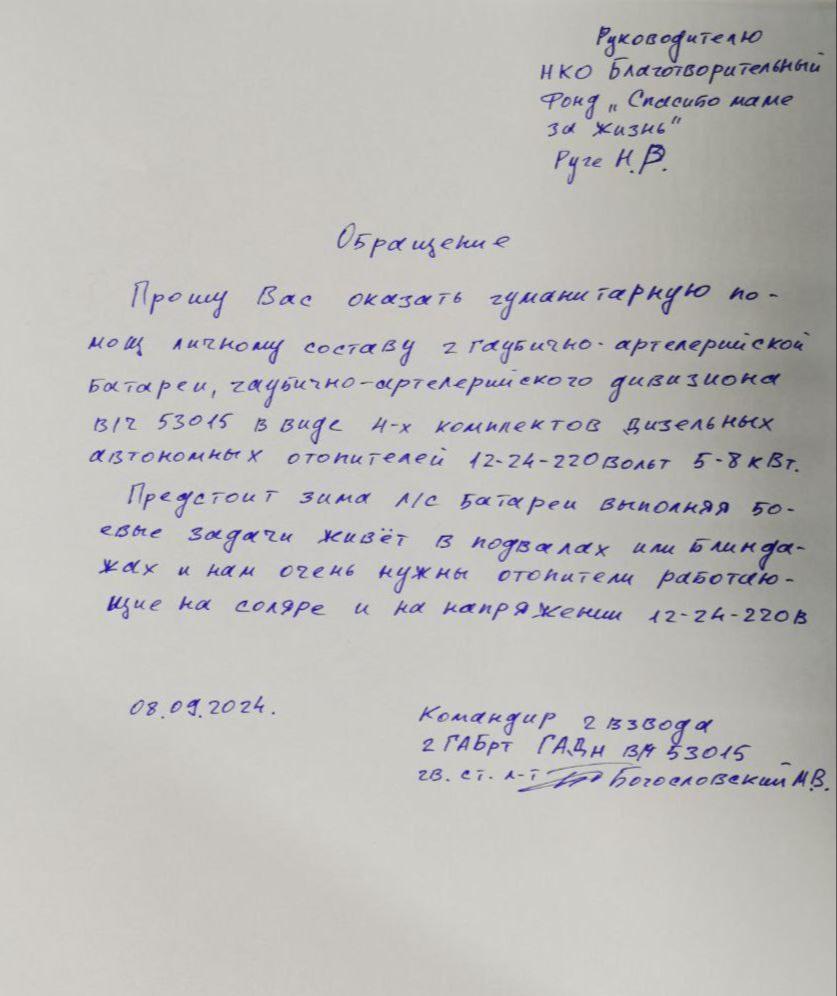 Руководителю
НКО Благотворительный
Фонд „Спасибо маме
за жизнь"
Руге Н.В.
Обращение
Прошу Вас оказать гуманитарную по-
мощ личному составу 2 гаубично-артелерийской
батареи, гаубично-артелерийского дивизиона
в/ч 53015 в виде 4-х комплектов дизельных
автономных отопителей 12-24-220 вольт 5-8 кВт.
Предстоит зима л/с батареи выполняя бо-
евые задачи живёт в подвалах или блинда-
жах и нам очень нужны отопители работаю-
щие на соляре и на напряжении 12-24-220в
08.09.2024.
Командир 2 взвода
2 ГАБрт ГАДн в/ч 53015
гв. ст. л-т Богословский М.В.